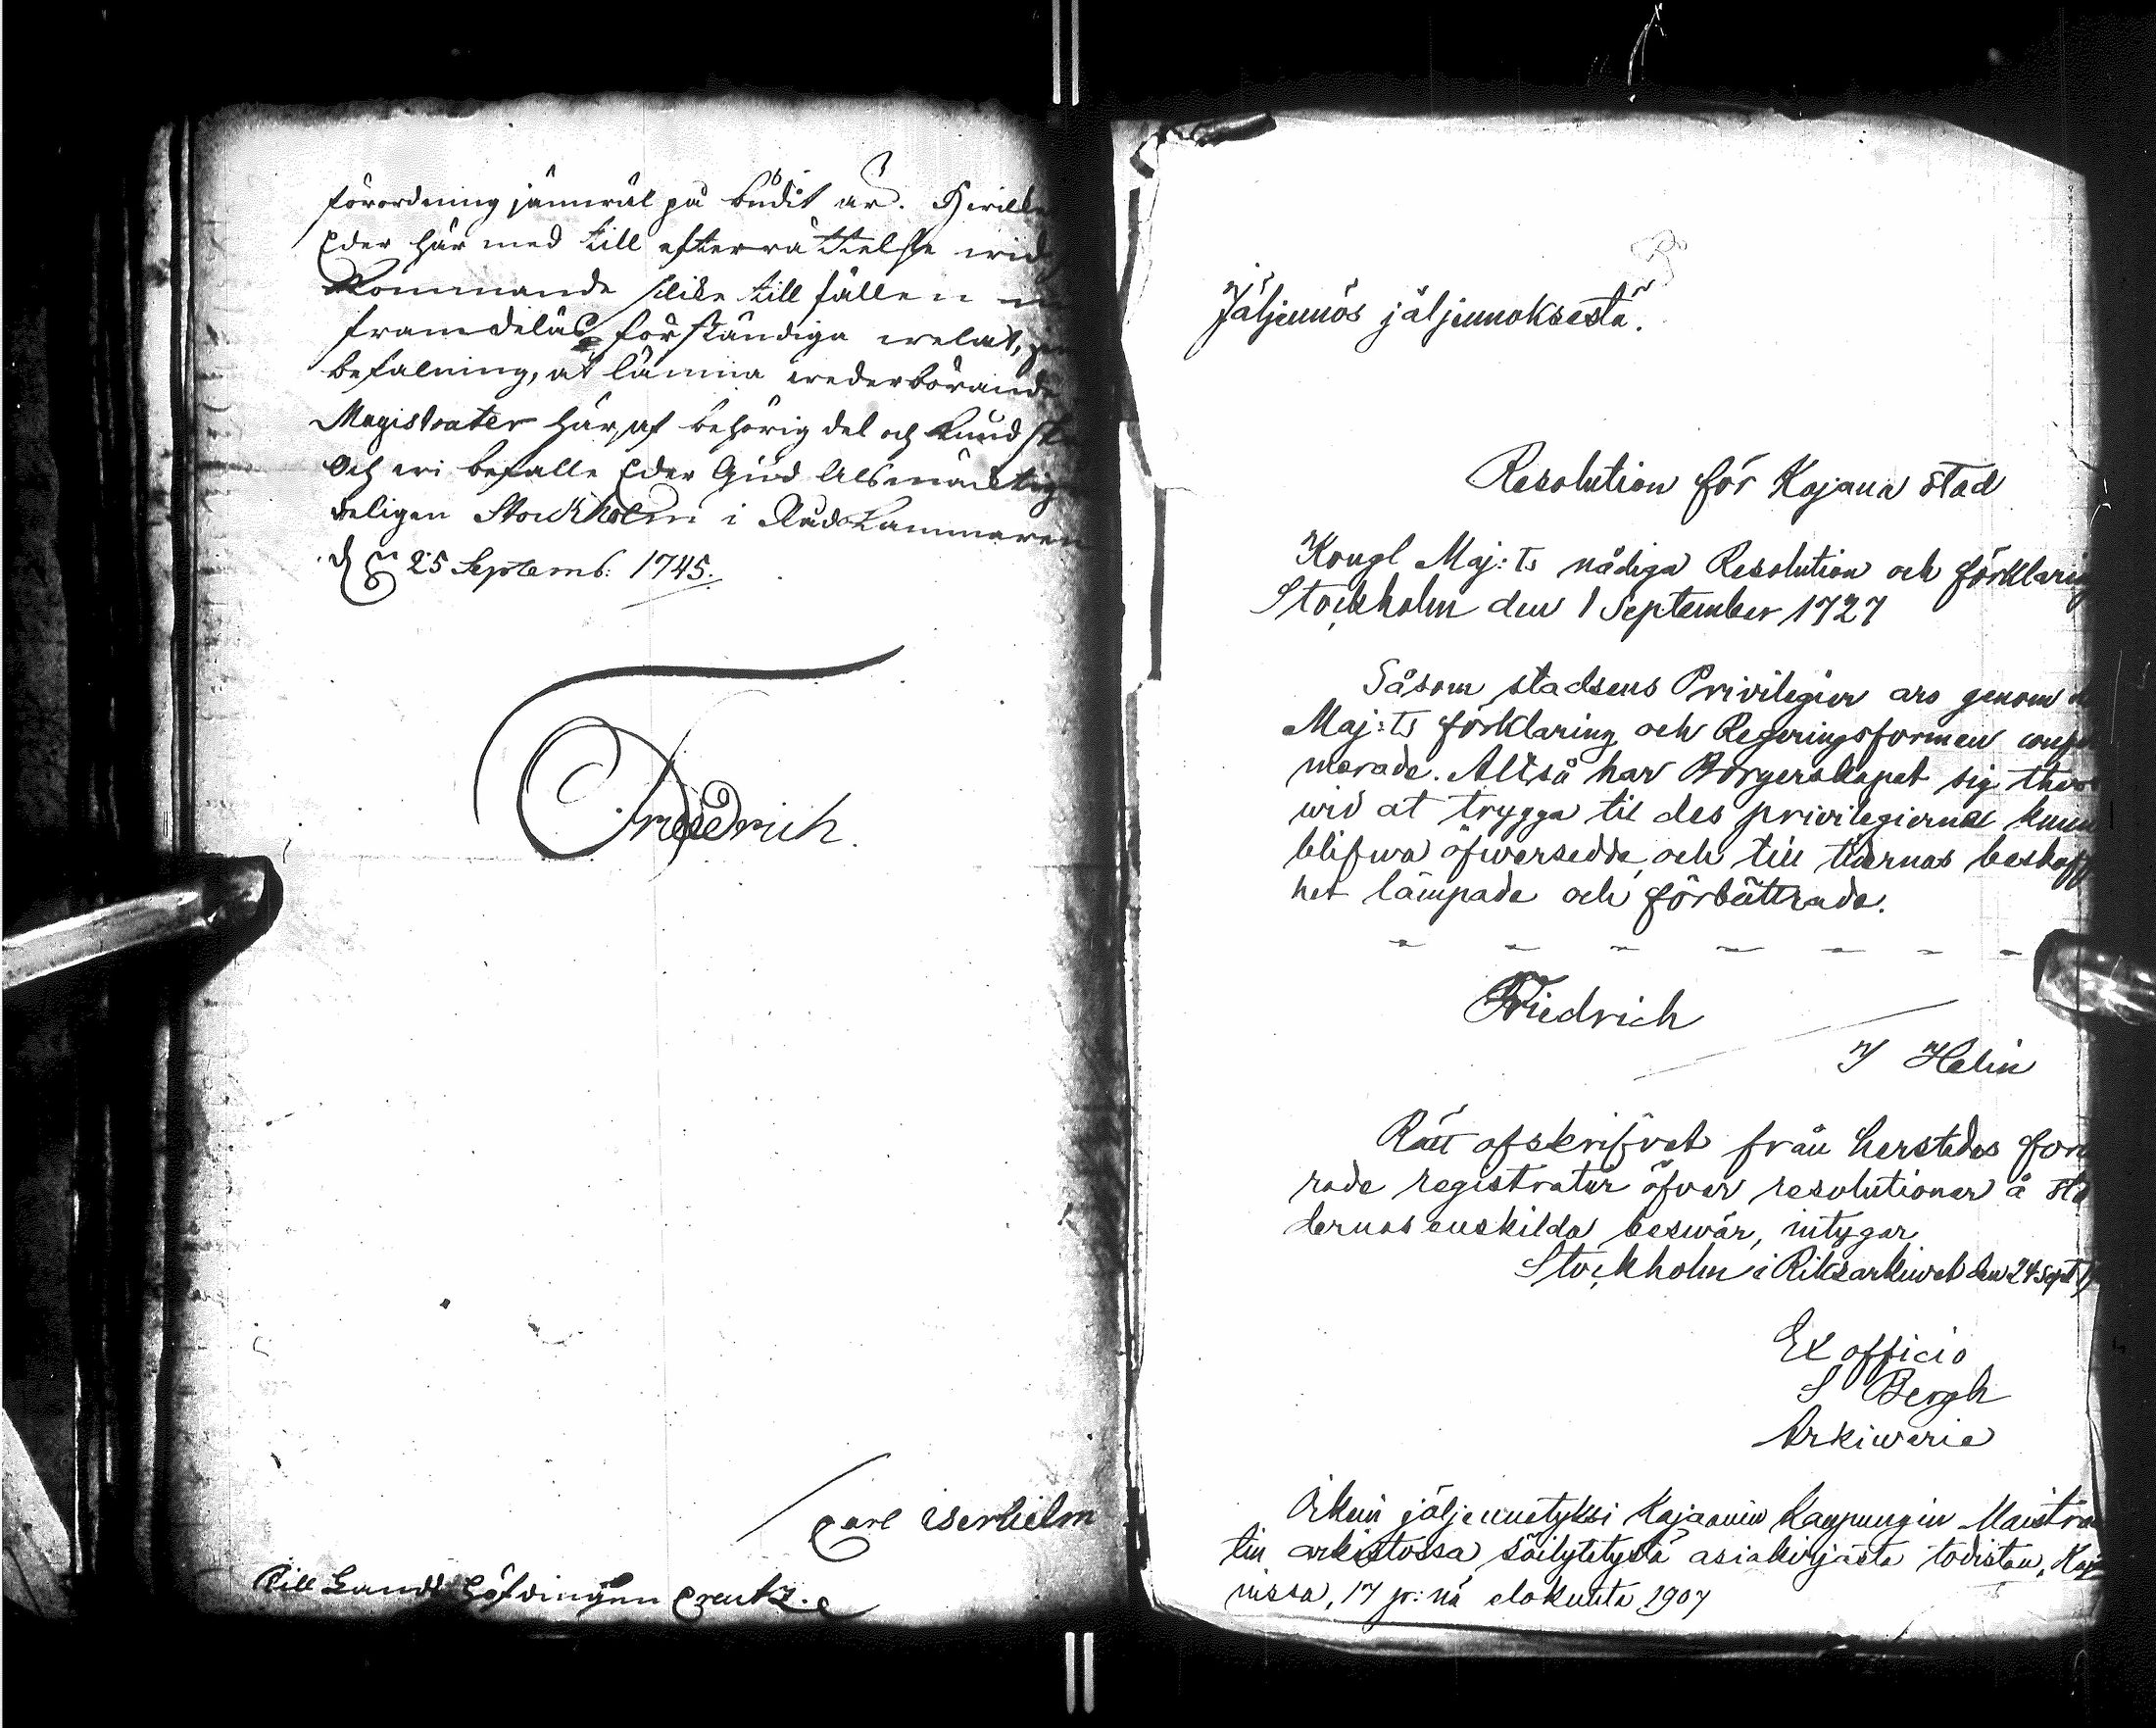 förordning jämwäl på budit är. Hwilke
Eder här med till efterrättelse wid
kommande slike till fällen
framdeles förständiga welat,
befalning, at lämna wederbörande
Magistrater här af behörig del och kund
Och wi befalle Eder Gud Alsmäcktig
deligen Stockholm i RådsKammaren
d 25 Septemb: 1745.
Friedrich
Carl Iserhielm
Till Landshöfdingen Creutz.
Jäljennös jäljennöksestä.
Resolution för Kajana stad
Kongl Maj:ts nådiga Resolution och förklaring
Stockholm den 1 September 1727
Såsom stadsens Privilegier äro genom
Maj:ts förklaring och Regeringsformen confir
merade. Altså har Borgerskapet sig ther
wid at trygga til des privilegierna kunn
blifwa öfwersedde och till tidernas beskaff
het lämpade och förbättrade.
Friedrich
J Helin
Rätt afskrifvet från härstädes förva
rade registratur öfver resolutioner å stä
dernas enskilda beswär, intygar
Stockholm i Riksarkivet den 24 Sept
Ex officio
S Bergh
Arkivarie
Oikein jäljennetyksi Kajaanin Kaupungin Maistraa
tin arkistossa säilytetystä asiakirjasta todistan, Kaja
nissa, 17 p:nä elokuuta 1907